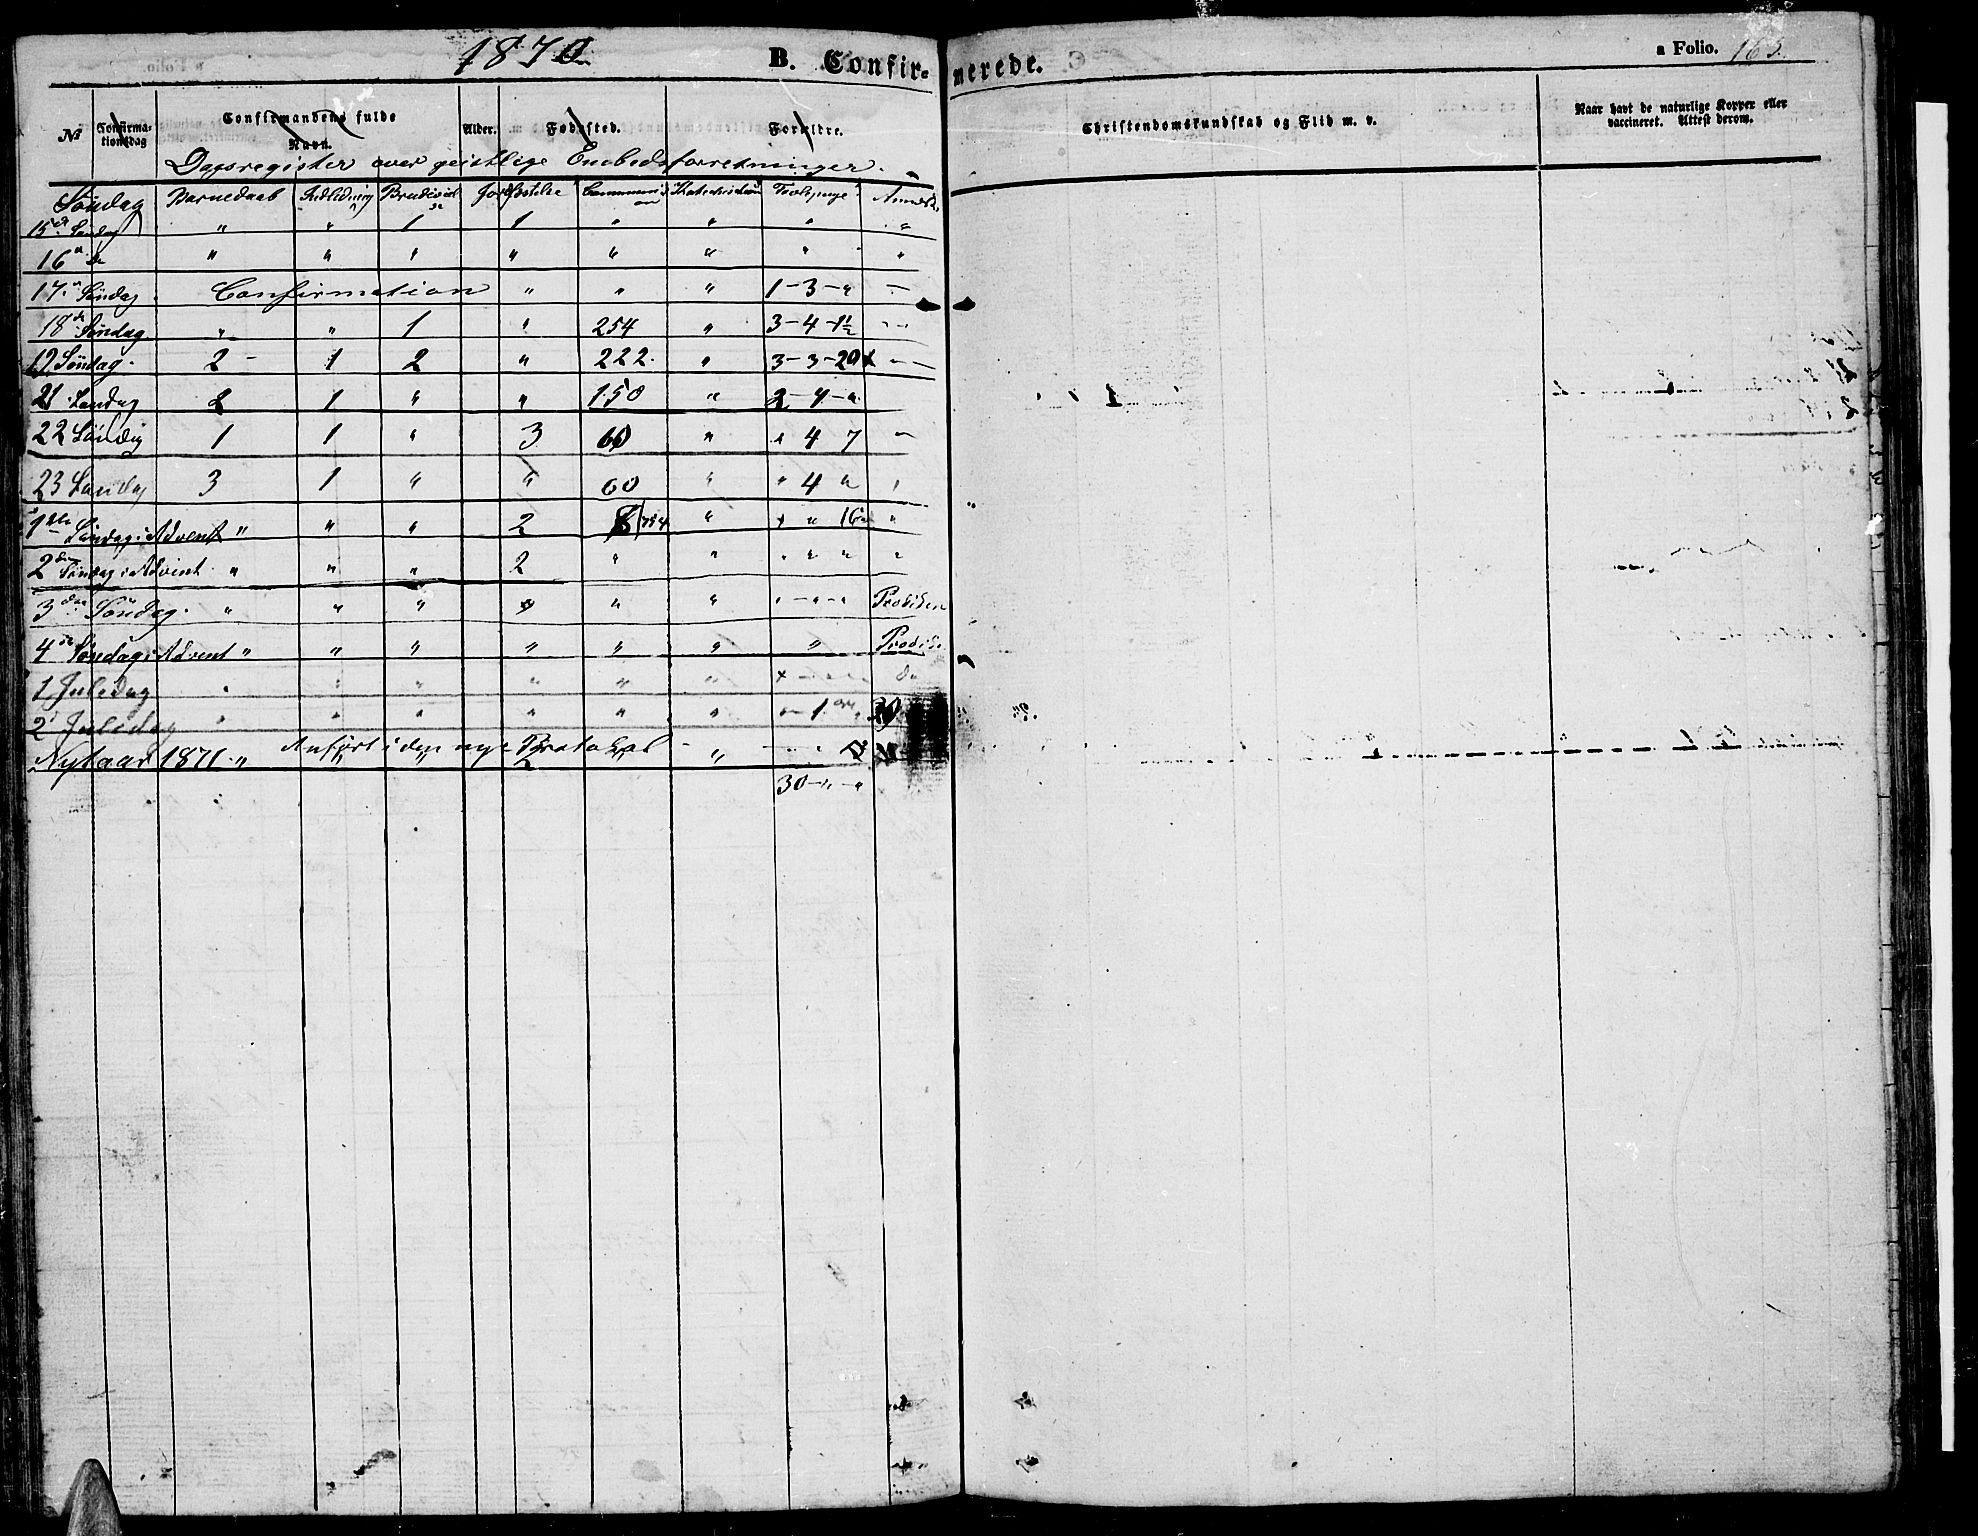 1870. B. Confirmerede. a Folio. 163.
No Confirmationsdag Confirmandens fulde Navn. Alder. Fødested. Forældre. Christendomskundskab og Flid m. v. Naar havt de naturlige Kopper eller vaccineret. Attest derom.
Dagsregister over geistlige Embedsforretninger.
Søndag Barnedaab Indledning Brudevielse Jordfæstelse Communion Katechisation Tavlepenge Anmærk
15de Søndag " " 1 1 " " " "
16de do " " " " " " " "
17de Søndag Confirmation " " " 1 - 3 - " -
18de Søndag " " 1 " 254 " 3 - 4 - 1½ -
19 Søndag 2 - 1 2 " 222 " 3 - 3 - 20 -
21 Søndag 2 1 " " 150 " 2 - 4 - "
22 Søndag 1 1 " 3 60 " " 4 7 -
23 Søndag 3 1 " " 60 " " 4 " "
1ste Søndag i Advent " " " 2 " " " 16 "
2den Søndag i Advent " " " 2 " " " " " "
3die Søndag " " " " " " " - " - "
4de Søndag i Advent " " " " " " "
1 Juledag " " " " " " do
2 Juledag " " " " " " - 1
Nytaar 1871 " Anført i den nye Protokol 2 - "
30 - " - "